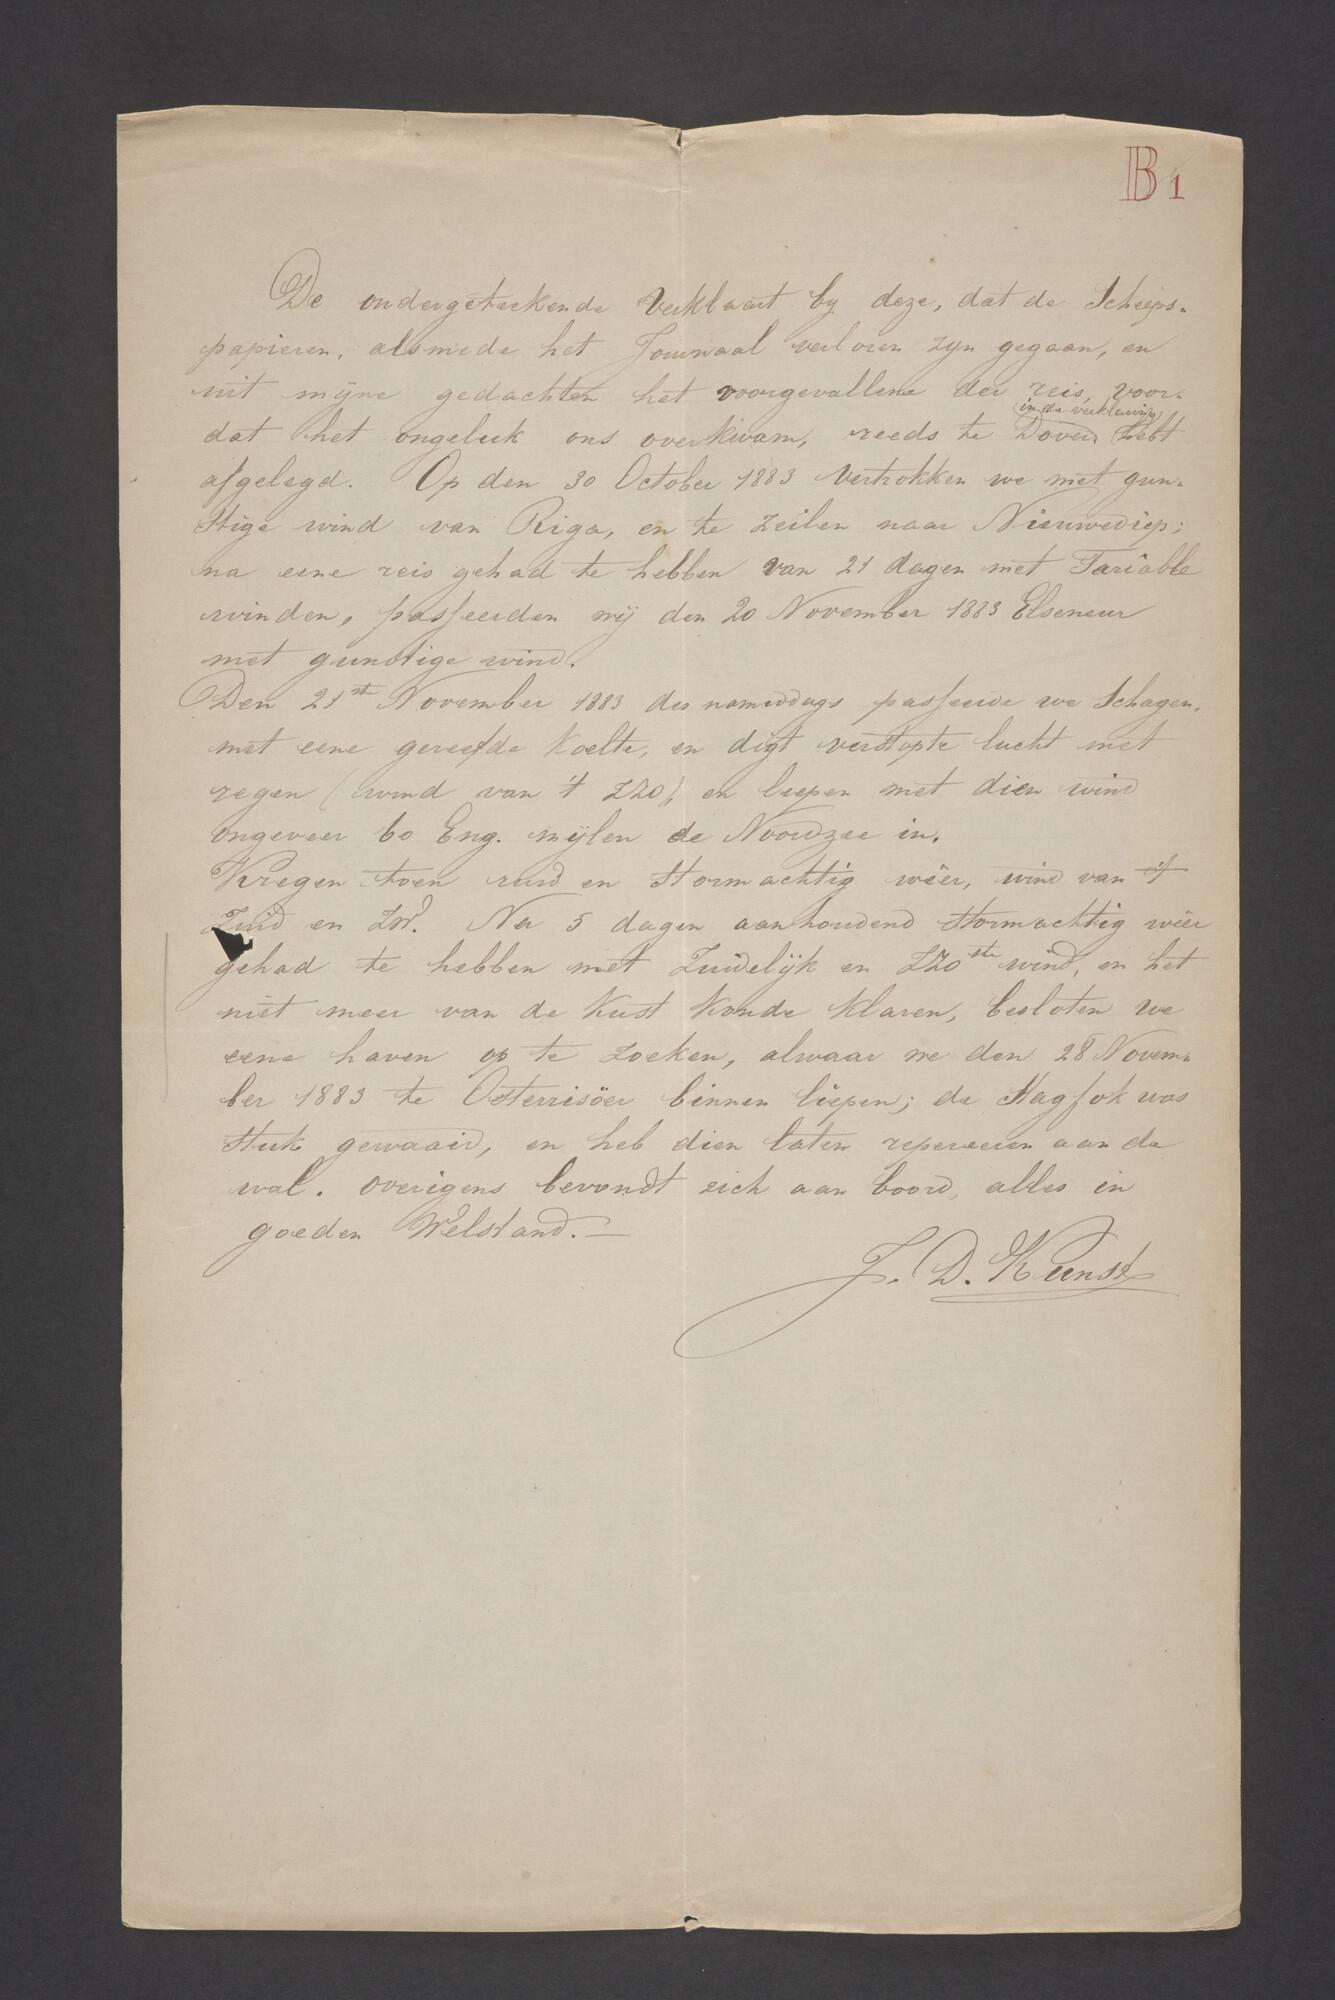 B 1
De ondergeteekende verklaart by deze, dat de Scheeps-
papieren, alsmede het Journaal verloren zyn gegaan, en
uit mijne gedachten het voorgevallene der reis, voor-
(in de verklaring)
dat het ongeluk ons overkwam, reeds te Dover hebt
afgelegd. Op den 30 October 1883 vertrokken we met gun-
stige wind van Riga, en te zeilen naar Nieuwediep;
na eene reis gehad te hebben van 21 dagen met Variable
winden, passeerden wij den 20 November 1883 Elseneur
met gunstige wind.
Den 21ste November 1883 des namiddags passeerde we Schagen,
met eene gereefde koelte, en digt verstopte lucht met
regen (wind van 't ZZO), en liepen met dien wind
ongeveer 60 Eng. mijlen de Noordzee in.
Kregen toen ruw en stormachtig wêer, wind van 't
Zuid en ZW. Na 5 dagen aanhoudend stormachtig wêer
gehad te hebben met Zuidelijk en ZZOste wind, en het
niet meer van de Kust konde klaren, besloten we
eene haven op te zoeken, alwaar we den 28 Novem-
ber 1883 te Osterrisöer binnen liepen; de Stagfok was
stuk gewaaid, en heb dien laten repereeren aan de
wal. overigens bevondt zich aan boord, alles in
goeden Welstand.—
J. D. Kunst